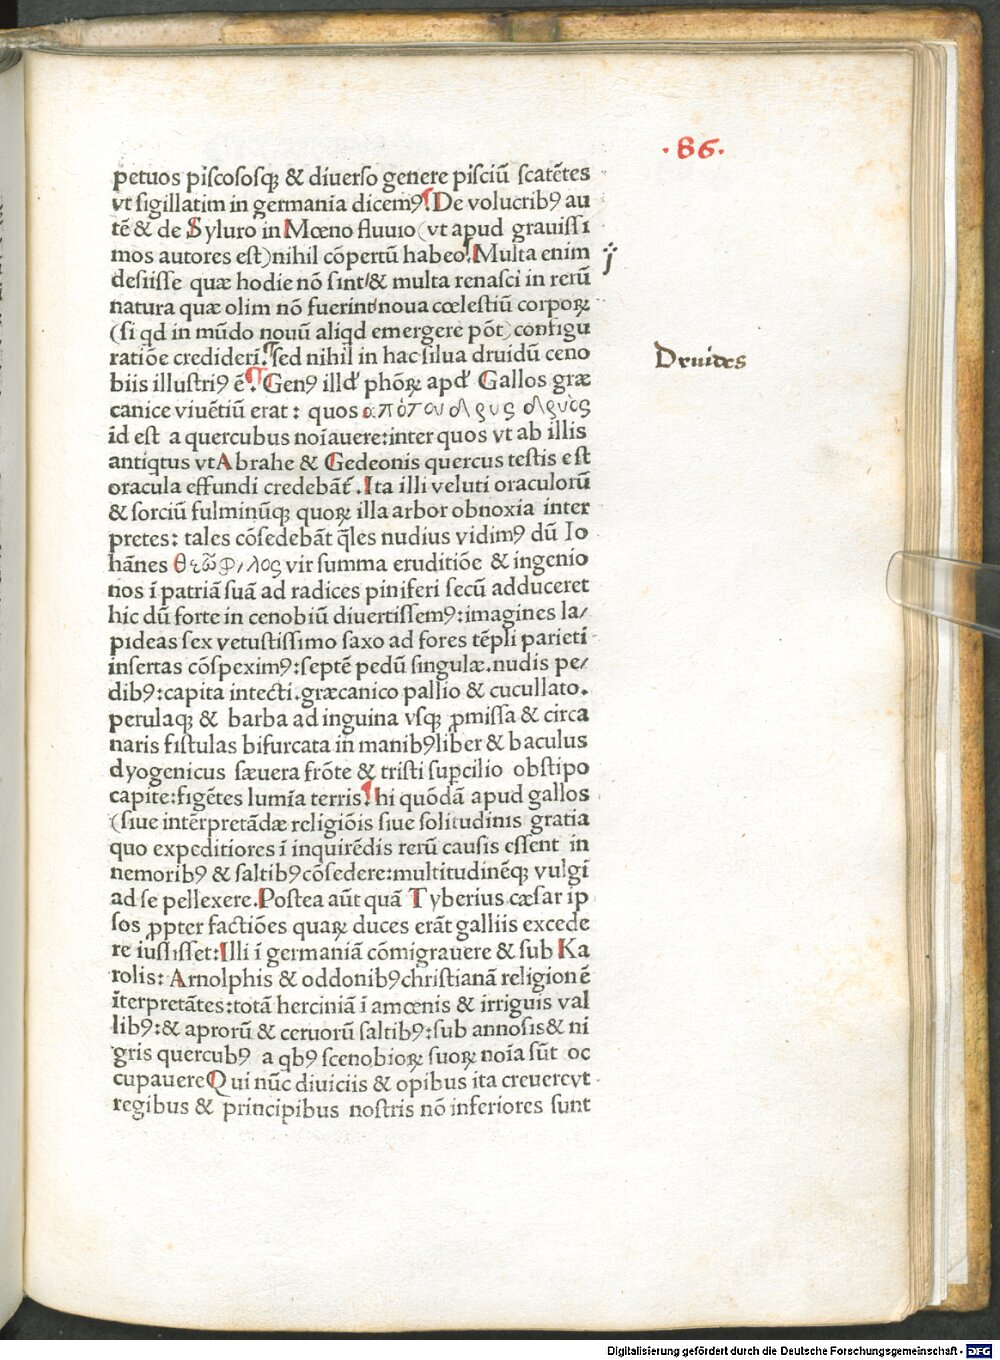 ·86·
petuos piscososq; & diuerso genere pisciū scatētes
vt sigillatim in germania dicemꝰ. De volucribꝰ au
tē & de Syluro in Mœno fluuio (vt apud grauissi
mos autores est) nihil cōpertū habeo. Multa enim
desiisse quæ hodie nō sint/& multa renasci in rerū
natura quæ olim nō fuerint/noua cœlestiū corporꝝ
(si qd in mūdo nouū aliqd emergere pōt) configu
ratiōe credideri. sed nihil in hac silua druidū ceno
biis illustriꝰ ē. Genꝰ illd' phōꝝ apd' Gallos græ
canice viuētiū erat: quos
id est a quercubus noīauere: inter quos vt ab illis
antiqtus vt Abrahe & Gedeonis quercus testis est
oracula effundi credebāt. Ita illi veluti oraculorū
& sorciū fulminūq; quoꝝ illa arbor obnoxia inter
pretes: tales cōsedebāt q̄les nudius vidimꝰ dū Io
hānes θεωφιλος vir summa eruditiōe & ingenio
nos ī patriā suā ad radices piniferi secū adduceret
hic dū forte in cenobiū diuertissemꝰ: imagines la/
pideas sex vetustissimo saxo ad fores tēpli parieti
insertas cōspeximꝰ: septē pedū singulæ. nudis pe/
dibꝰ: capita intecti. græcanico pallio & cucullato.
perulaq; & barba ad inguina vsq; ꝓmissa & circa
naris fistulas bifurcata in manibꝰ liber & baculus
dyogenicus sæuera frōte & tristi suꝑcilio obstipo
capite: figētes lumīa terris. hi quōdā apud gallos
(siue intēr̄pretādæ religiōis siue solitudinis gratia
quo expeditiores ī inquirēdis rerū causis essent in
nemoribꝰ & saltibꝰ cōsedere: multitudinēq; vulgi
ad se pellexere. Postea aūt quā Tyberius cæsar ip
sos ꝓpter factiōes quaꝝ duces erāt galliis excede
re iussisset: Illi ī germaniā cōmigrauere & sub Ka
rolis: Arnolphis & oddonibꝰ christianā religionē
īterpretātes: totā herciniā ī amœnis & irriguis val
libꝰ: & aprorū & ceruorū saltibꝰ: sub annosis & ni
gris quercubꝰ a qbꝰ scenobioꝝ suoꝝ noīa sūt oc
cupauere Qui nūc diuiciis & opibus ita creuere vt
regibus & principibus nostris nō inferiores sunt
Druides
Digitalisierung gefördert durch die Deutsche Forschungsgemeinschaft - DFG